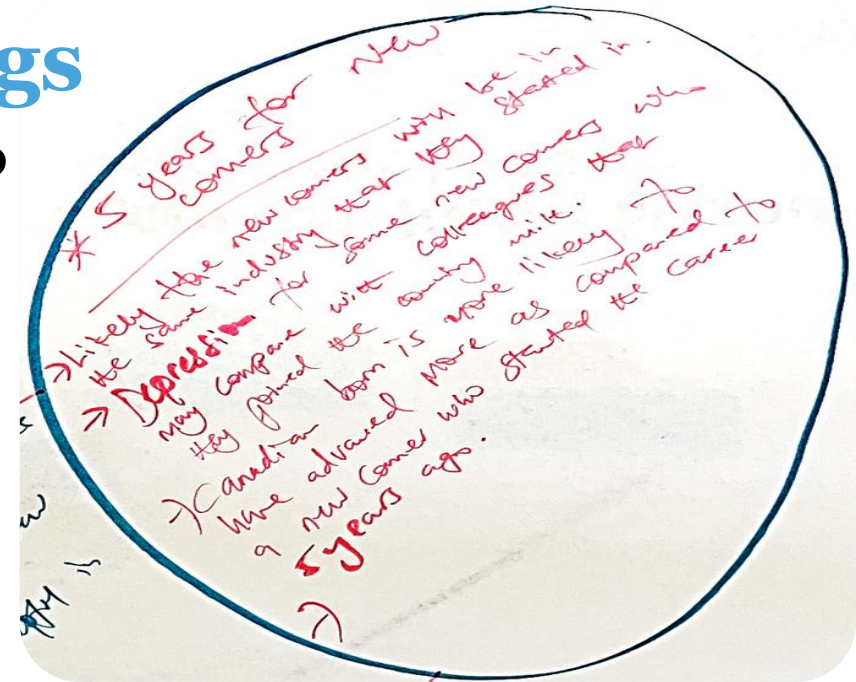 gs
* 5 years for New
comers
→ Likely the new comers will be in
the same industry that they started in.
→ Depression for some new comers who
may compare with colleagues that
they joined the country with.
→ Canadian born is more likely to
have advanced more as compared to
a new comer who started the career
5 years ago.
→
is